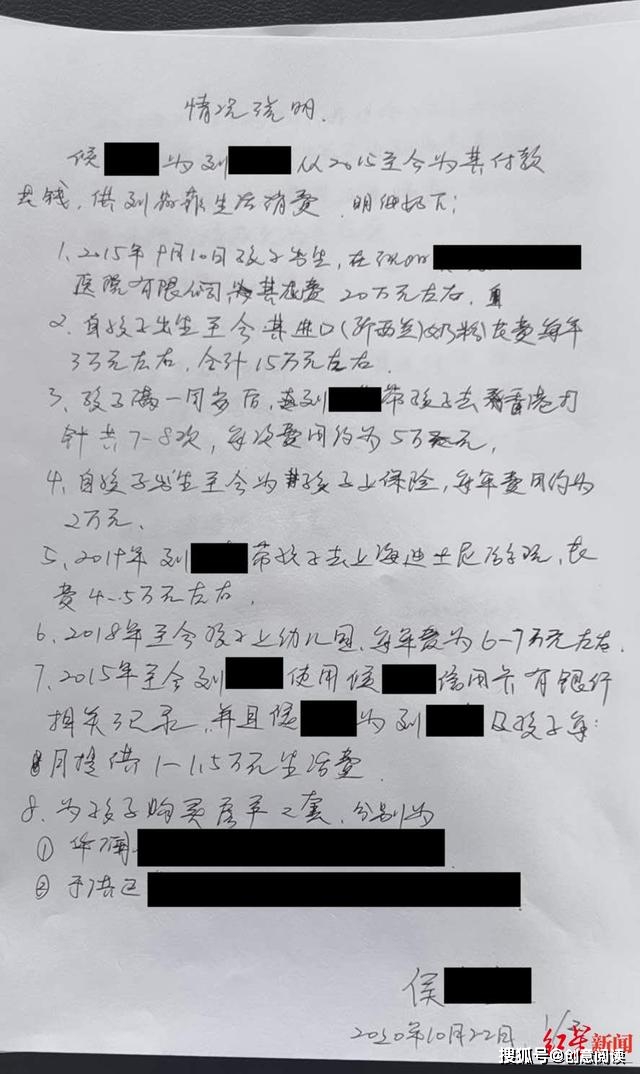 情况说明.
侯 为刘 从2015至今为其付款
花钱,供刘 生活消费.明细如下:
1.2015年9月10日孩子出生,在沈阳
医院有限公司 其花费20万元左右.
2.自孩子出生至今其进口(新西兰)奶粉花费每年
3万元左右,合计15万元左右.
3、孩子满一周岁后,刘 带孩子去香港打
针共7-8次,每次费用约为5万元.
4、自孩子出生至今为孩子上保险,每年费用约为
2万元.
5、2019年刘 带孩子去上海迪士尼 玩,花
费4-5万元左右.
6、2018年至今孩子上幼儿园,每年费为6-7万元左右.
7、2015年至今刘 使用侯 信用卡有银行
相关记录,并且侯 为刘 及孩子每
月提供1-1.5万元生活费.
8、为孩子购买房产二套,分别为
① 华润
② 于洪区
侯
2020年10月22日
红星新闻
搜狐号@创意阅读